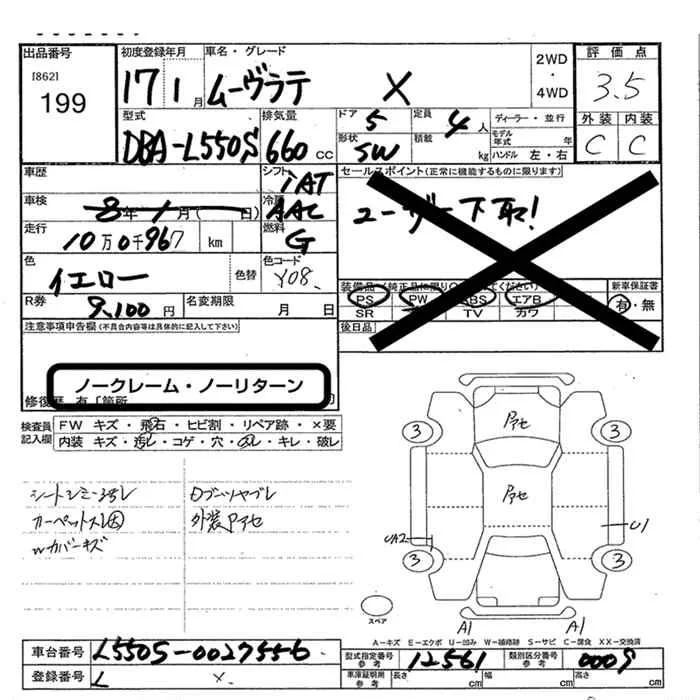 出品番号
[862]
199
初度登録年月
17 1 月
車名・グレード
ムーヴラテ X
2WD
・
4WD
評価点
3.5
外装 内装
C C
型式
DBA-L550S
排気量
660 cc
ドア 5
形状 SW
定員 4 人
積載 kg
ディーラー・並行
モデル年式 年
ハンドル 左・右
車歴
シフト
IAT
車検
8年1月( 日)
冷房
AAC
走行
10万0千967 km
燃料
G
色
イエロー
色替
色コード
Y08
R券
9,100円
名変期限
月 日
セールスポイント(正常に機能するものに限ります)
ユーザー下取!
装備品(純正品に限り ください)
PS PW ABS エアB
SR TV カワ
新車保証書
有・無
後日品
注意事項申告欄(不具合内容等は具体的に記入して下さい)
ノークレーム・ノーリターン
修復歴 有「箇所
検査員記入欄
FW キズ・飛石・ヒビ割・リペア跡・×要
内装 キズ・汚レ・コゲ・穴・スレ・キレ・破レ
シートシミ・
カーペットスレ
Wカバーキズ
Dブーツヤブレ
外装アセ
アセ
アセ
3
3
3
3
UA2
U1
A1
A1
スペア
A-キズ E-エクボ U-凹み W-補修跡 S-サビ C-腐食 XX-交換済
車台番号
L550S-0027556
登録番号
L ×
型式指定番号
参考
12561
類別区分番号
参考
0009
車庫証明用
参考
長さ cm
幅 cm
高さ cm